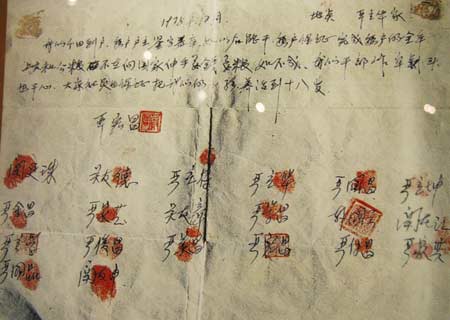 1978年12月 地点 严立华家
我们分田到户,每户户主签字盖章,如以后能干,每户保证完成每户的全年
上交和公粮,不在向国家伸手要钱要粮。如不成,我们干部作牢刹头
也干心,大家社员也保证把我们的小孩养活到十八岁。
严宏昌
关友德 严立符 严立华 严国昌 严立坤
严金昌 严家芝 关友章 严学昌 关友江
严立学 严俊昌 严美昌 严宏昌 严付昌 严家其
严国品 关友申